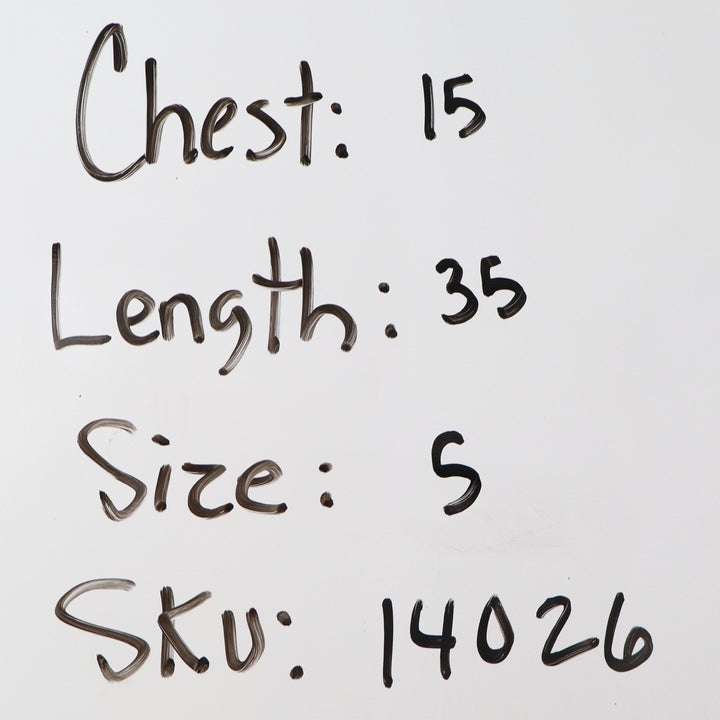 Chest: 15
Length: 35
Size: S
SKU: 14026